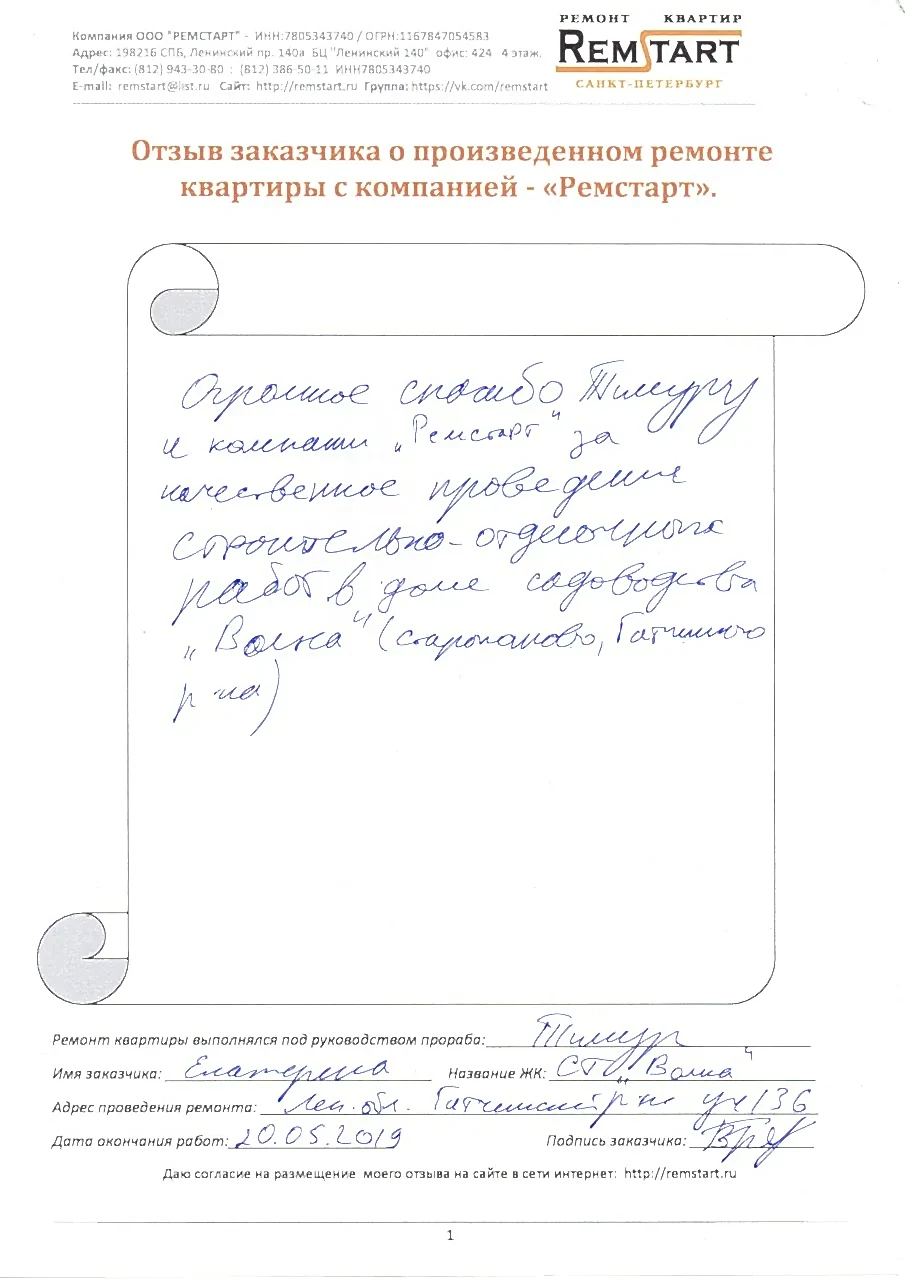 Компания ООО "РЕМСТАРТ" - ИНН:7805343740 / ОГРН:1167847054583
Адрес: 198216 СПБ, Ленинский пр. 140а БЦ "Ленинский 140" офис: 424 4 этаж.
Тел/факс: (812) 943-30-80 : (812) 386-50-11 ИНН7805343740
E-mail: remstart@list.ru Сайт: http://remstart.ru Группа: https://vk.com/remstart
РЕМОНТ КВАРТИР
REMSTART
САНКТ-ПЕТЕРБУРГ
Отзыв заказчика о произведенном ремонте
квартиры с компанией - «Ремстарт».
Огромное спасибо Тимуру
и компании „Ремстарт" за
качественное проведение
строительно-отделочных
работ в доме садоводства
„Волна" (Старопаново, Гатчинского
р-на)
Ремонт квартиры выполнялся под руководством прораба: Тимур
Имя заказчика: Екатерина Название ЖК: СТ „Волна"
Адрес проведения ремонта: Лен. обл. Гатчинский р-н уч 136
Дата окончания работ: 20.05.2019 Подпись заказчика:
Даю согласие на размещение моего отзыва на сайте в сети интернет: http://remstart.ru
1